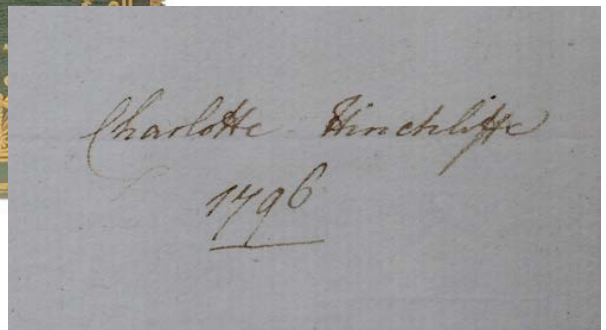 Charlotte Hinchliffe
1796